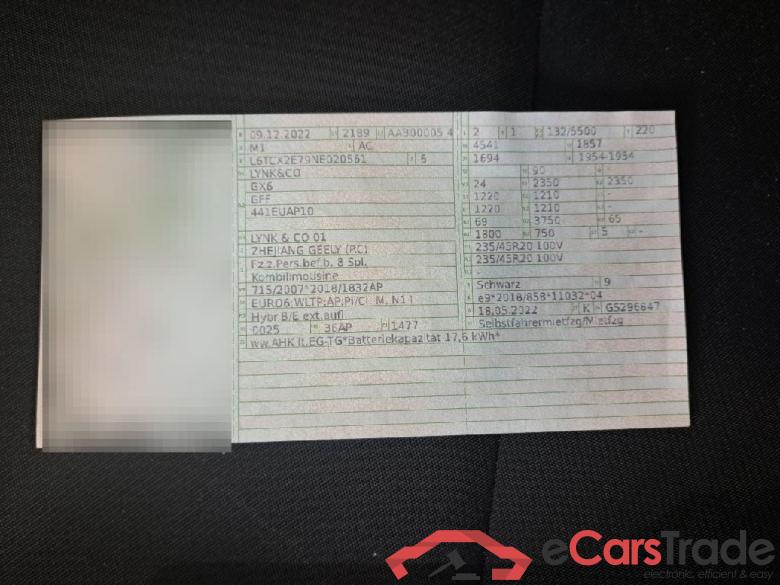 09.12.2022 2189 AAB00005 4
M1 AC
L6TCX2E79NE020561 5
LYNK&CO
GX6
GFF
441EUAP10
LYNK & CO 01
ZHEJIANG GEELY (RC)
Fz.z.Pers.bef.b. 8 Spl.
Kombilimousine
715/2007*2018/1832AP
EURO6;WLTP;AP;PI/CI M, N1 I
Hybr.B/E ext.aufl
0025 36AP 1477
ww.AHK lt.EG-TG*Batteriekapazität 17,6 kWh*
2 1 132/5500 220
4541 1857
1694 1954-1954
- 90 -
24 2350 2350
1220 1210 -
1220 1210 -
69 3750 65
1800 750 5 -
235/45R20 100V
235/45R20 100V
-
Schwarz 9
e9*2018/858*11032*04
18.05.2022 K G5296647
Selbstfahrermietfzg/Mietfzg
eCarsTrade
electronic, efficient & easy